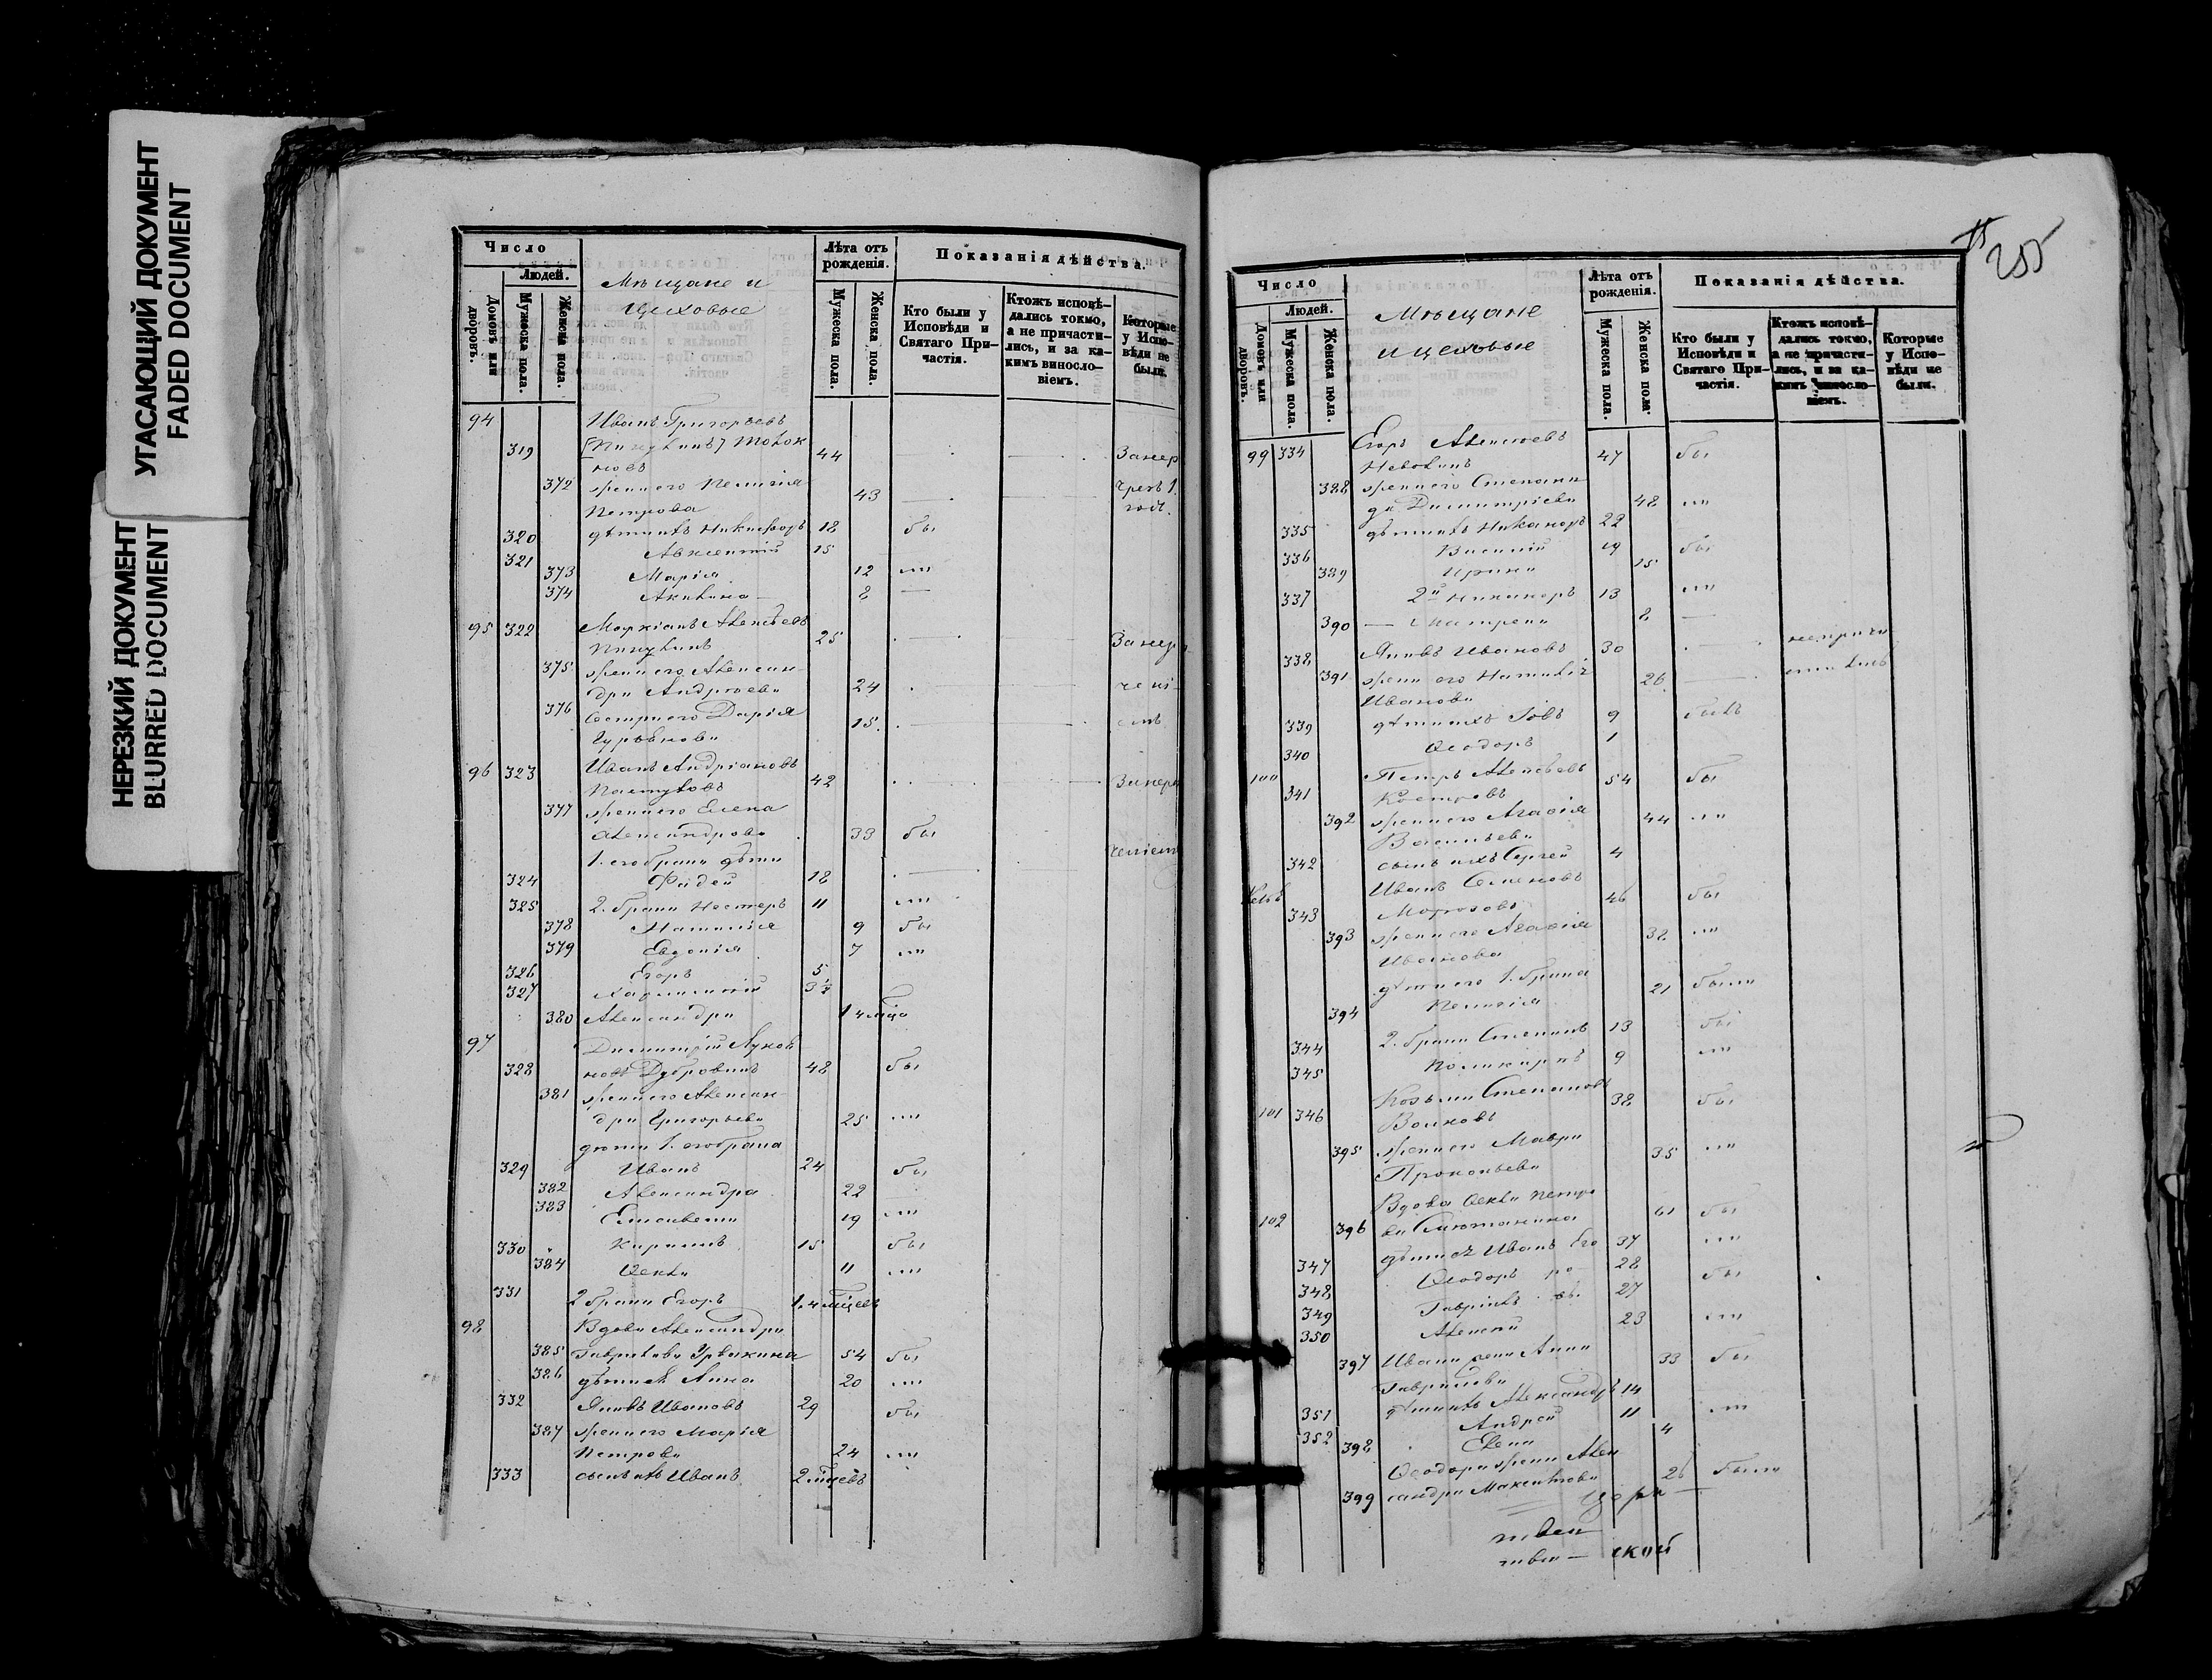 УГАСАЮЩИЙ ДОКУМЕНТ
FADED DOCUMENT
НЕРЕЗКИЙ ДОКУМЕНТ
BLURRED DOCUMENT
Число
Людей.
Домовъ или дворовъ.
Мужеска пола.
Женска пола.
Мѣщане и
Цеховые
Лѣта отъ рожденія.
Мужеска пола.
Женска пола.
Показанія дѣйства.
Кто были у Исповѣди и Святаго Причастія.
Ктожъ исповѣдались токмо, а не причастились, и за какимъ винословіемъ.
Которые у Исповѣди не были.
94 Иванъ Григорьевъ
319 44
372 жена его Пелагія 43
Петрова
320 дѣти ихъ Никифоръ 18 бы
321 Авксентій 15
373 Марія 12
374 Акилина 8
95 322 Маркіанъ Алексѣевъ
25
375 жена его Алексан-
дра Андреева 24
376 Сестра его Дарія 15
Гурьянова
96 323 Иванъ Андріановъ
Пастуховъ 42
377 жена его Елена
Александрова 33 бы
1. его брака дѣти
324 Фадей 18
325 2. брака Нестеръ 11
378 Наталія 9 бы
379 Евдокія 7
326 Егоръ 5
327 Харлампій 3½
380 Александра 1 4 мѣся
97 Димитрій Лукья-
328 новъ Дубровинъ 48 бы
381 жена его Алексан-
дра Григорьева 25
дѣти 1. его брака
329 Иванъ 24 бы
382 Александра 22
383 Елисавета 19
330 Кириллъ 15 бы
384 Ѳекла 11
331 2 брака Егоръ 1.4 мѣсцевъ
98 Вдова Александра
385 Гаврилова Урвакина 54 бы
386 дѣти ея Анна 20
332 Яковъ Ивановъ 29 бы
387 жена его Марія
Петрова 24
333 сынъ ихъ Иванъ 2 мѣсцевъ
255
Число
Людей.
Домовъ или дворовъ.
Мужеска пола.
Женска пола.
Мѣщане
и цеховые
Лѣта отъ рожденія.
Мужеска пола.
Женска пола.
Показанія дѣйства.
Кто были у Исповѣди и Святаго Причастія.
Ктожъ исповѣдались токмо, а не причастились, и за какимъ винословіемъ.
Которые у Исповѣди не были.
99 334 Егоръ Алексѣевъ 47 бы
388 жена его Степани-
да Димитріева 48
335 дѣти ихъ Никаноръ 22
336 Василій 19 бы
389 Ирина 15
337 2й Никаноръ 13
390 Матрена 8
338 Яковъ Ивановъ 30
391 жена его Наталія 26
Иванова
339 дѣти ихъ Іовъ 9 былъ
340 Ѳеодоръ 1
100 Петръ Алексѣевъ 54 бы
341 Костровъ
392 жена его Агаѳія 44
Васильева
342 сынъ ихъ Сергей 4
Иванъ Семеновъ
343 Морозовъ 46 бы
393 жена его Агаѳія 32
Иванова
дѣти его 1. брака 21 была
394 Пелагія
344 2. брака Степанъ 13 бы
345 Поликарпъ 9
101 346 Козьма Степановъ 38 бы
Волковъ
395 жена его Мавра 35
Прокопьева
Вдова Ѳекла Петро
102 396 ва 61 бы
347 дѣти ея Иванъ Его 37
348 Ѳеодоръ ро 28 бы
349 Гавріилъ вы 27
350 Алексѣй 23
397 Ивана жена Анна 33 бы
Гаврилова
351 дѣти ихъ Александръ 14
352 Андрей 11
398 Елена 4
Ѳеодора жена Алек
399 сандра Макси 26 была
церк
ской